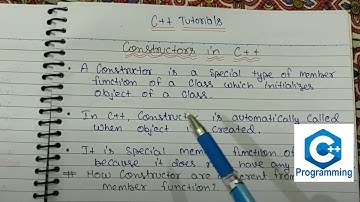 C++ Tutorials
Constructors in C++
• A Constructor is a special type of member
function of a class which initializes
object of a class.
• In C++, Construct is automatically called
when object created.
• It is special member function of
because it does have any
# How Constructor are from
member function?
C++
Programming